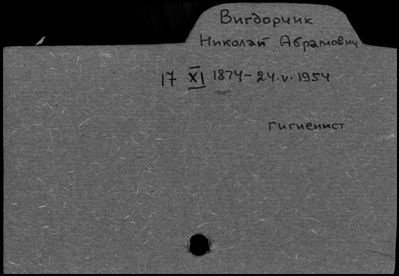 Вигдорчик
Николай Абрамович
17 XI 1874 - 24.V.1954
гигиенист